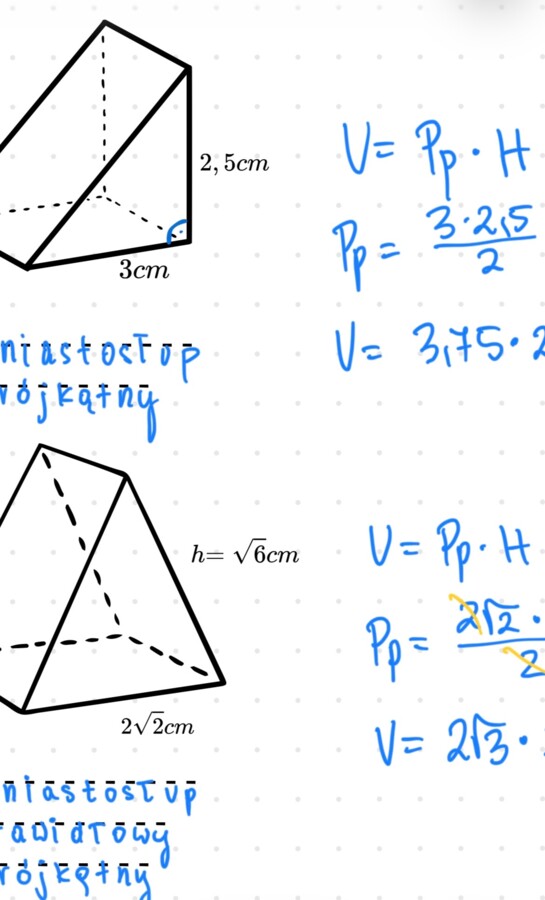 2,5cm
V= Pp · H
Pp = 3·2,5
2
3cm
V= 3,75·2
niastosłup
rójkątny
h= √6cm
V= Pp · H
Pp= 2√2 ·
2
2√2cm
V= 2√3 ·
niastosłup
awidłowy
rójkątny